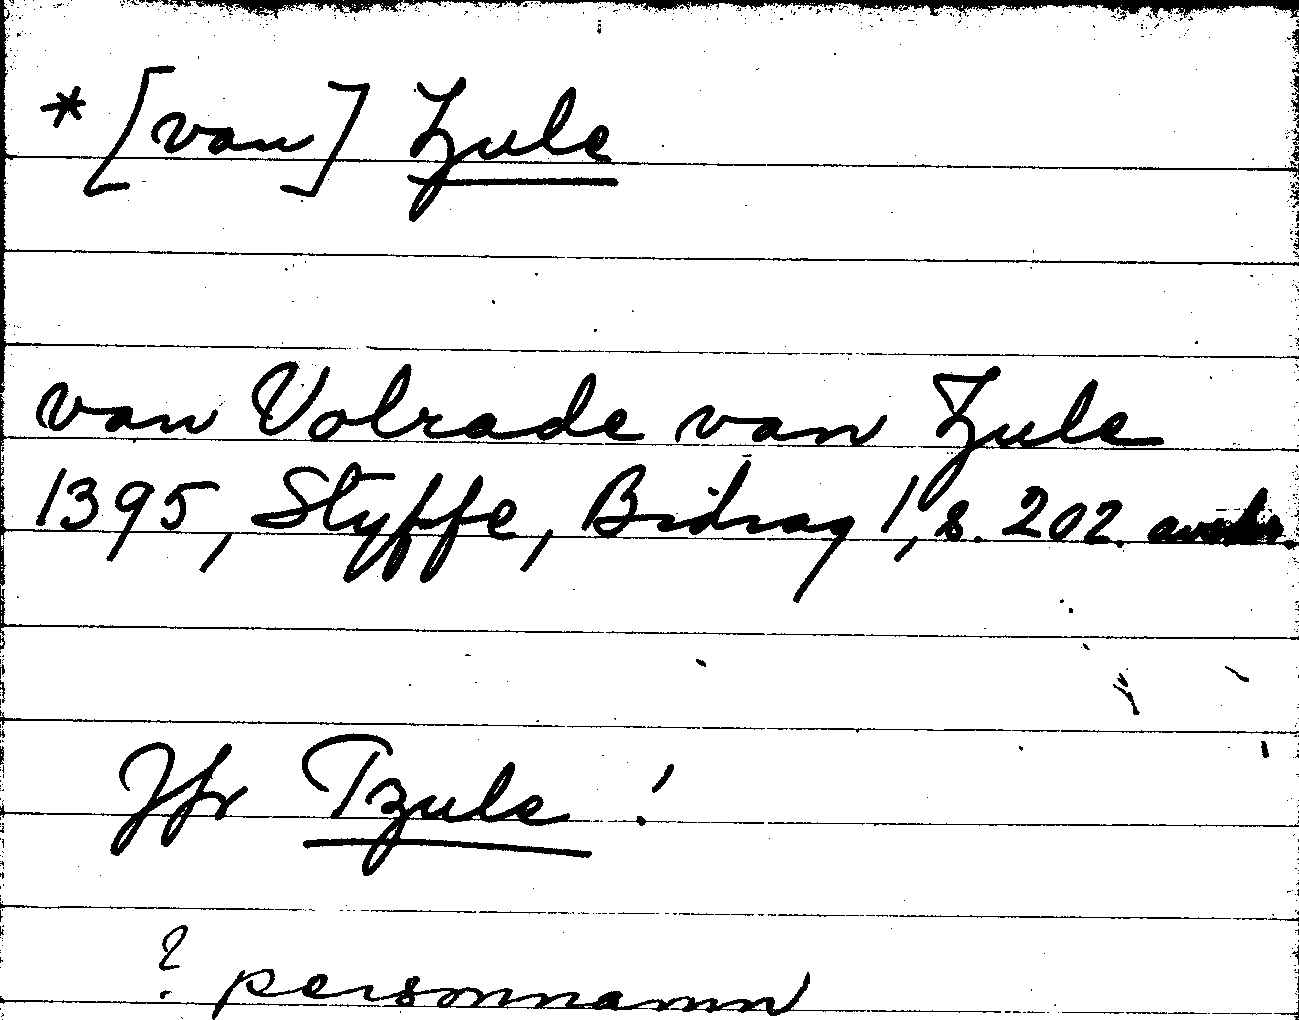 * [van] Zule
van Volrade van Zule
1395, Styffe, Bidrag 1, s. 202.
Jfr Tzule !
? personnamn